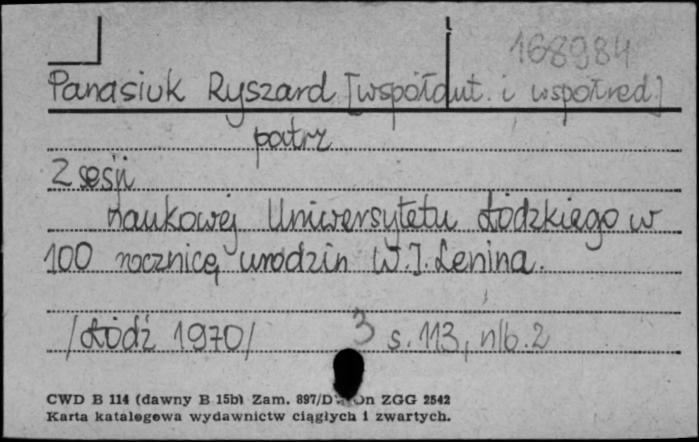 168984
Panasiuk Ryszard [współaut. i współred]
patrz
Z sesji
naukowej Uniwersytetu Łódzkiego w
100 rocznicę urodzin W.I. Lenina.
/Łódź 1970/ 3 s. 113, nlb. 2
CWD B 114 (dawny B 15b) Zam. 897/D ZGG 2542
Karta katalogowa wydawnictw ciągłych i zwartych.